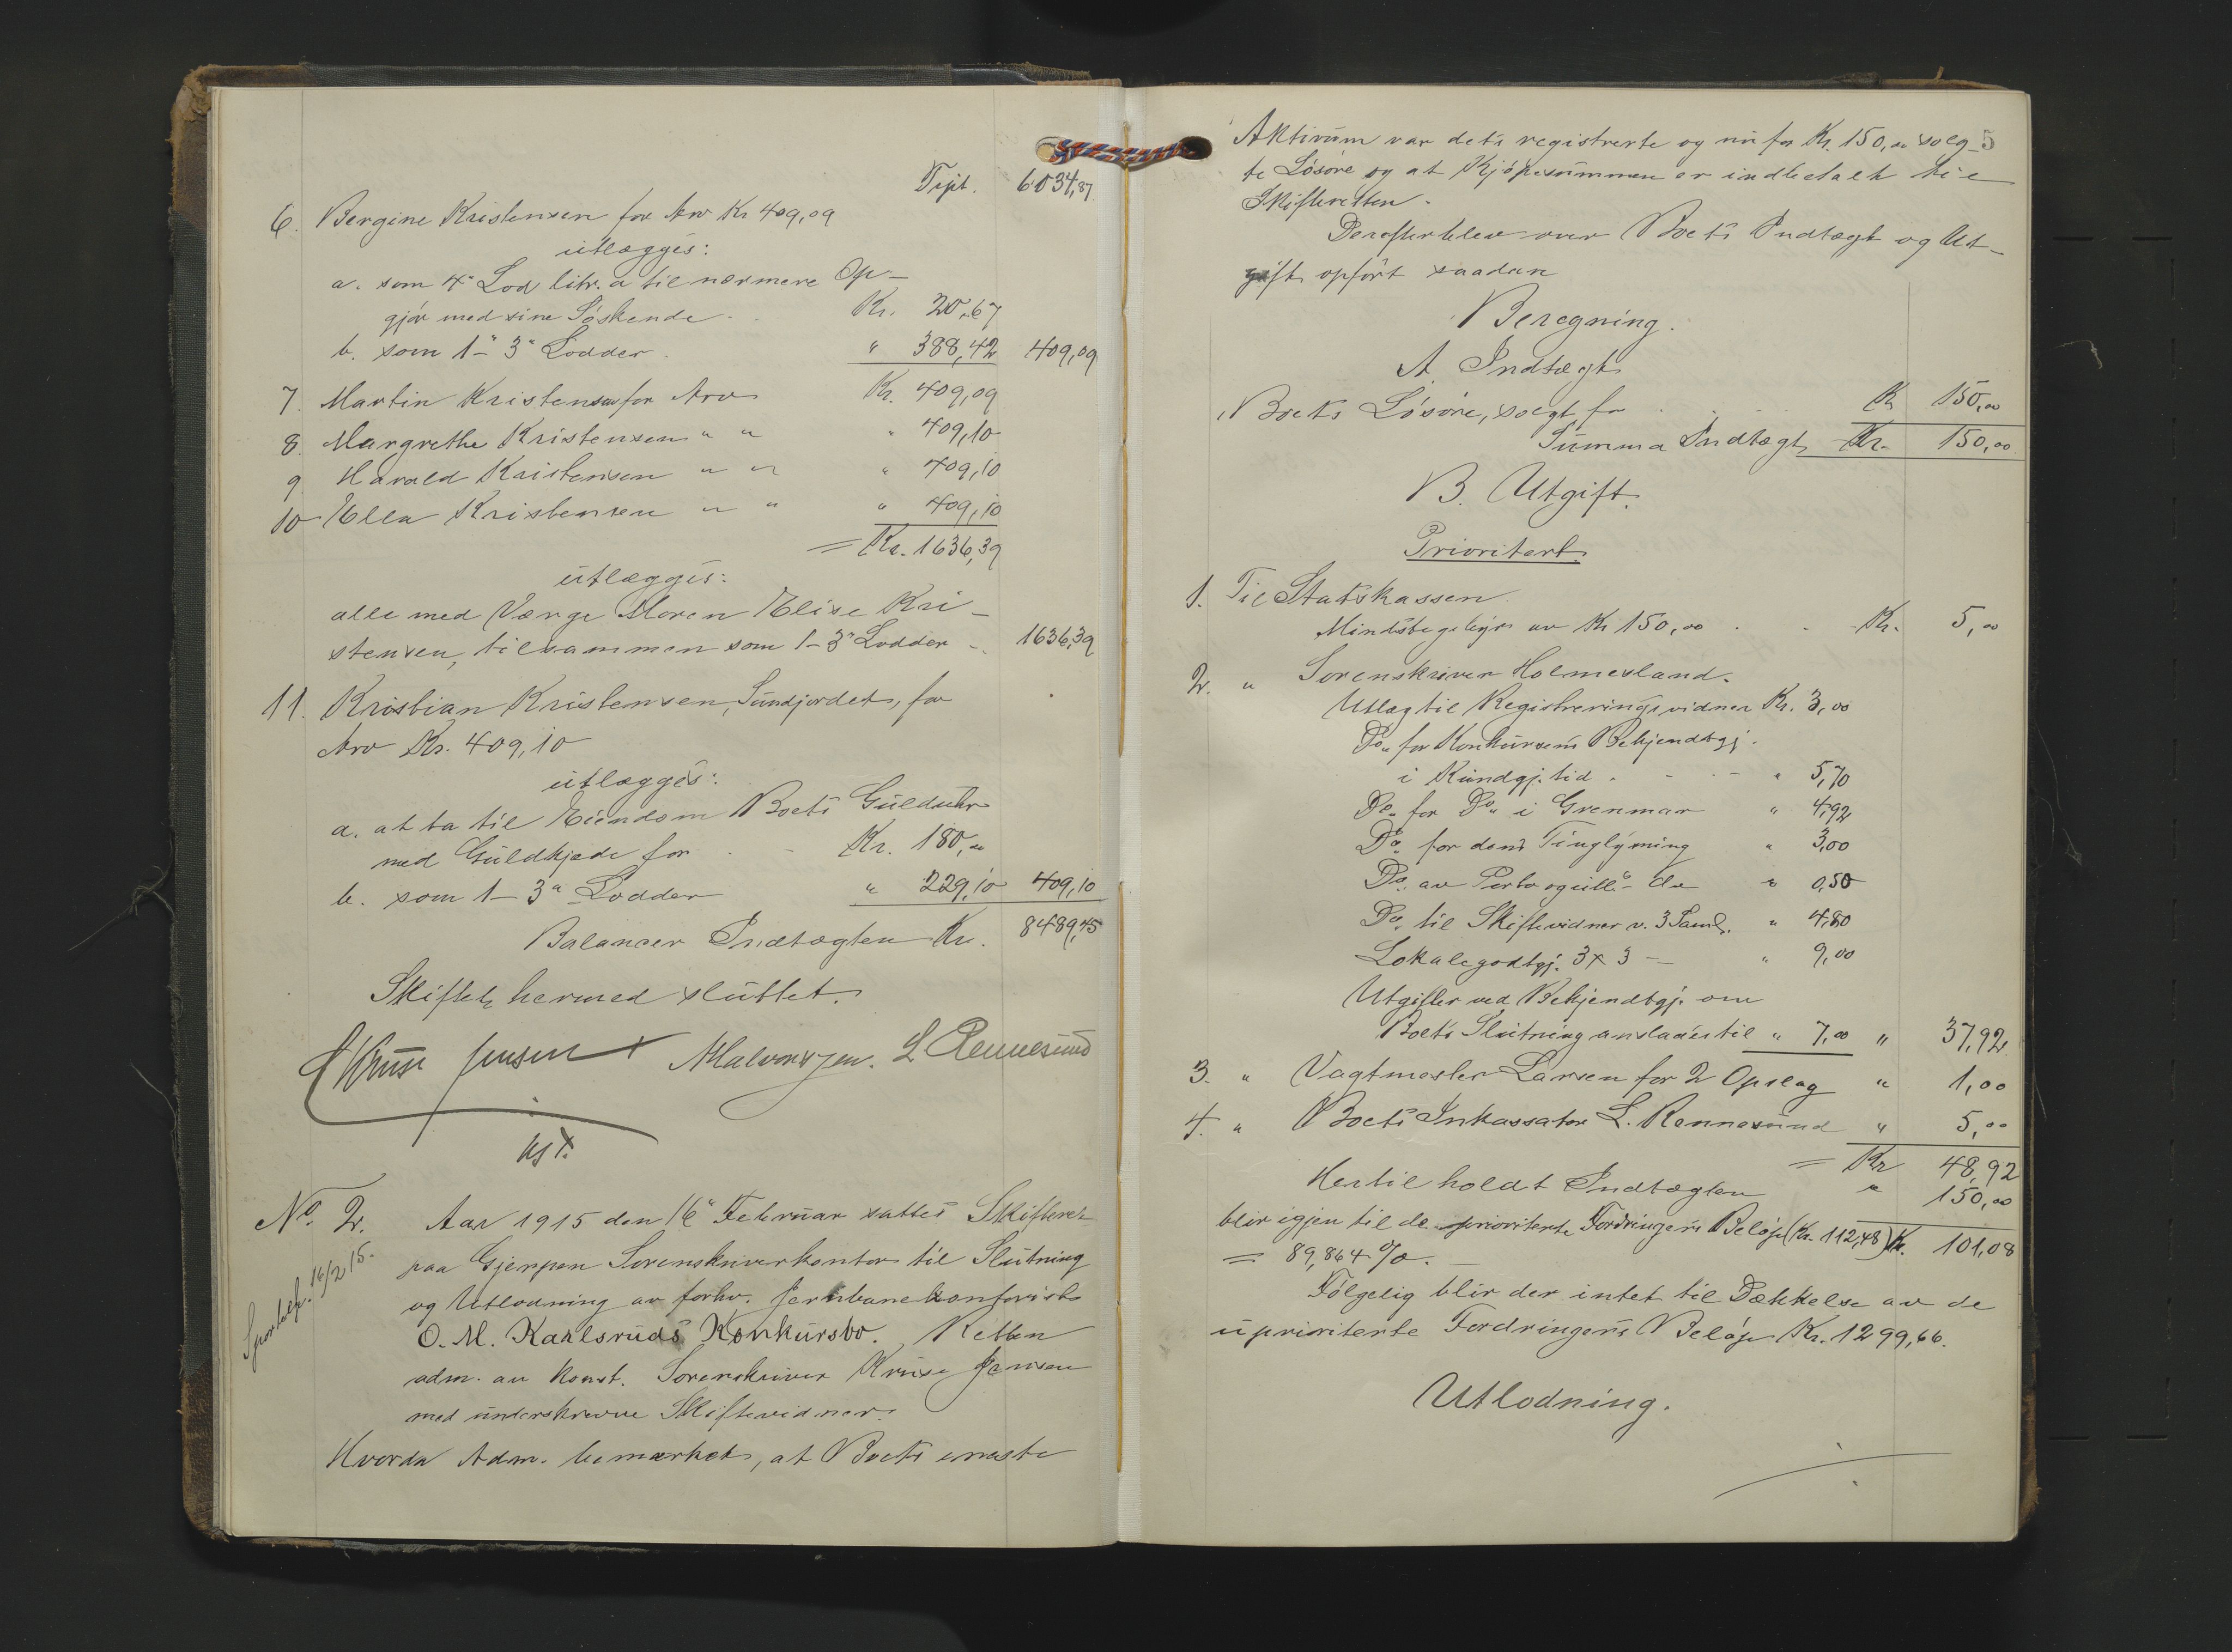 Tpt. 6034,87
6. Bergine Kristensen for Arv Kr 409,09
utlægges:
a. som 4" Lod litr. a til nærmere Op-
gjør med sine Søskende . . Kr. 20,67
b. som 1-" 3" Lodder . " 388,42 409,09
7. Martin Kristensen for Arv Kr. 409,09
8. Margrethe Kristensen " " " 409,10
9 Harald Kristensen " " " 409,10
10 Ella Kristensen " " " 409,10
= Kr. 1636,39
utlægges:
alle med Værge Moren Elise Kri-
stensen, tilsammen som 1-3" Lodder - 1636,39
11. Kristian Kristensen, Sundjordet, for
Arv Kr. 409,10
utlægges:
a. at ta til Eiendom Boets Gulduhr
med Guldkjede for - Kr. 180,00
b. som 1-3" Lodder " 229,10 409,10
Balancer Indtægten Kr. 8489,45
Skiftet hermed sluttet.
Kruse Jensen A Halvorsen. L Rennesund
kst.
No. 2. Aar 1915 den 16" Februar sattes Skifteret
paa Gjerpen Sorenskriverkontor til Slutning
og Utlodning av forhv. Jernbanekonforist
O. M. Karlsruds Konkursbo. Retten
adm. av konst. Sorenskriver Kruse Jensen
med underskrevne Skiftevidner.
Hvorda Adm. bemærket, at Boets eneste
16/2 15.
5
Aktivum var dets registrerte og nu for Kr. 150,00 solg-
te Løsøre og at Kjøpesummen er indbetalt til
Skifteretten.
Derefter blev over Boets Indtægt og Ut-
gift opført saadan
Beregning.
A. Indtægt
Boets Løsøre, solgt for . . . K 150,00
Summa Indtægt Kr. 150,00
B. Utgift.
Prioritert
1. Til Statskassen
Mindstegebyr av Kr 150,00 . - Kr. 5,00
2. " Sorenskriver Holmesland.
Utlæg til Registreringsvidner Kr. 3,00
Do. for Konkursens Bekjendtgj.
i Kundgj. tid . - . - " 5,70
Do. for Do. i Grenmar " 4,92
Do. for dens Tinglysning " 3,00
Do. av Porto " 0,50
Do. til Skiftevidner v. 3 Saml. " 4,80
Lokalegodtgj. 3 x 3 - " 9,00
Utgifter ved Bekjendtgj. om
Boets Slutning anslaaes til " 7,00 " 37,92
3. " Vagtmester Larsen for 2 Opslag " 1,00
4. " Boets Inkassator L. Rennesund " 5,00
= Kr 48,92
Hertil holdt Indtægten " 150,00
blir igjen til de prioriterte Fordringers Beløp (Kr. 112,48) Kr. 101,08
= 89,864 %. -
Følgelig blir der intet til Dækkelse av de
uprioriterte Fordringers Beløp Kr. 1299,66.
Utlodning.